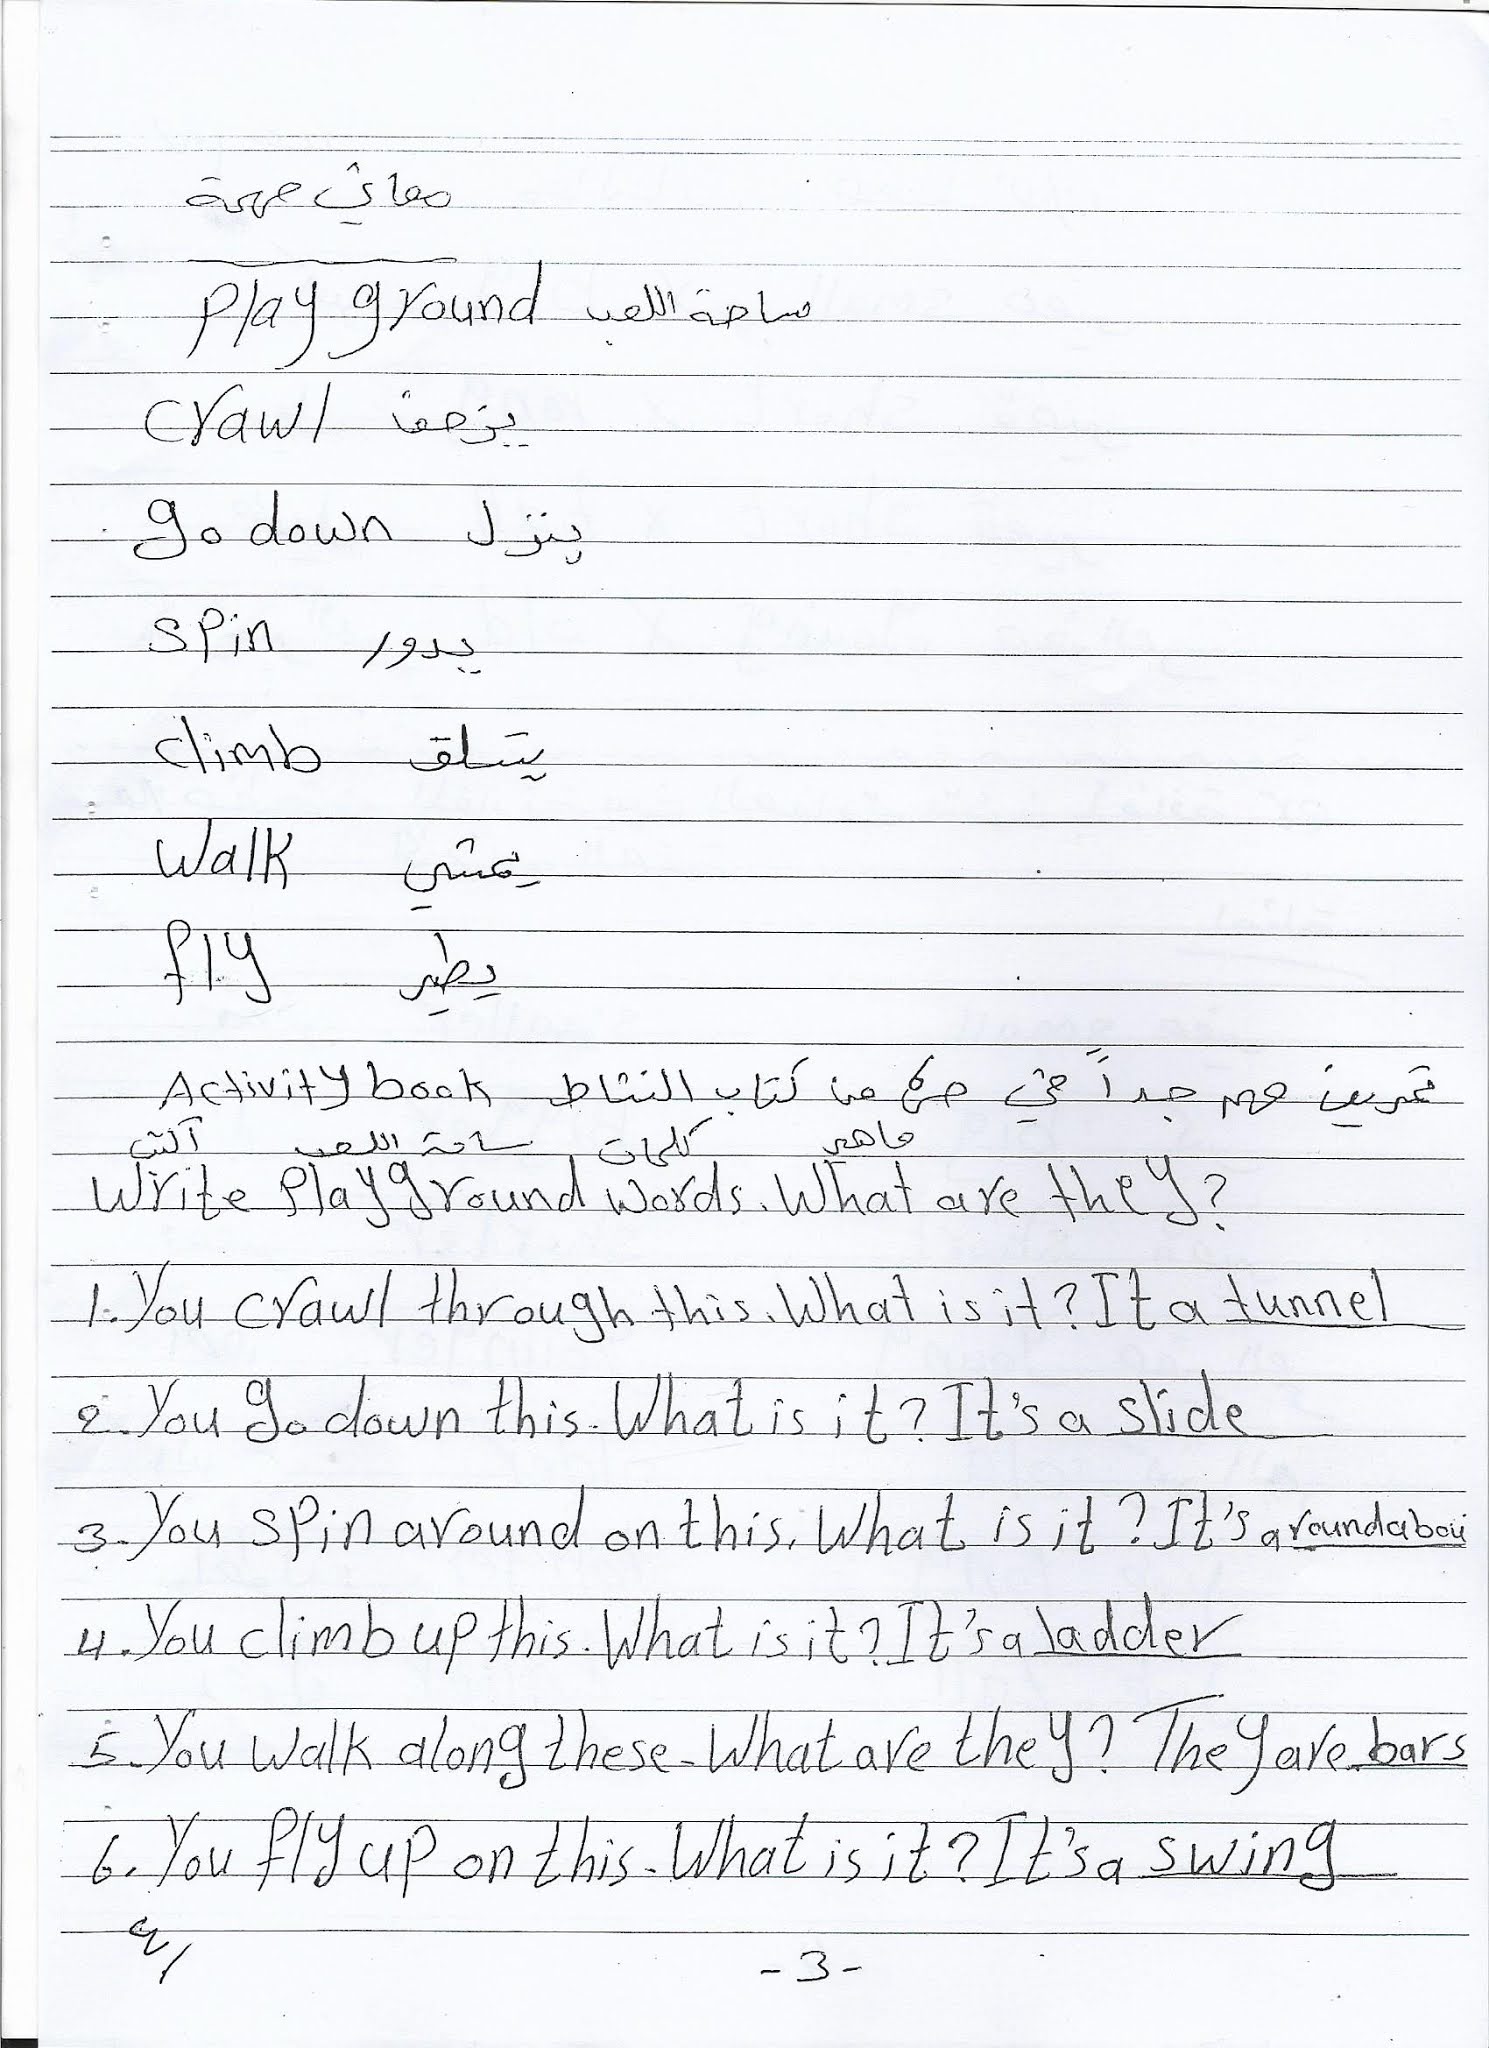 معاني مهمة
play ground ساحة اللعب
crawl يزحف
go down ينزل
spin يدور
climb يتسلق
walk يمشي
fly يطير
تمرين مهم جداً في من كتاب النشاط Activity book
أكتب ساحة اللعب كلمات ماهي
Write playground words. What are they?
1. You crawl through this. What is it? It a tunnel
2. You go down this. What is it? It's a slide
3. You spin around on this. What is it? It's a roundabou
4. You climb up this. What is it? It's a ladder
5. You walk along these. What are they? They are bars
6. You fly up on this. What is it? It's a swing
-3-